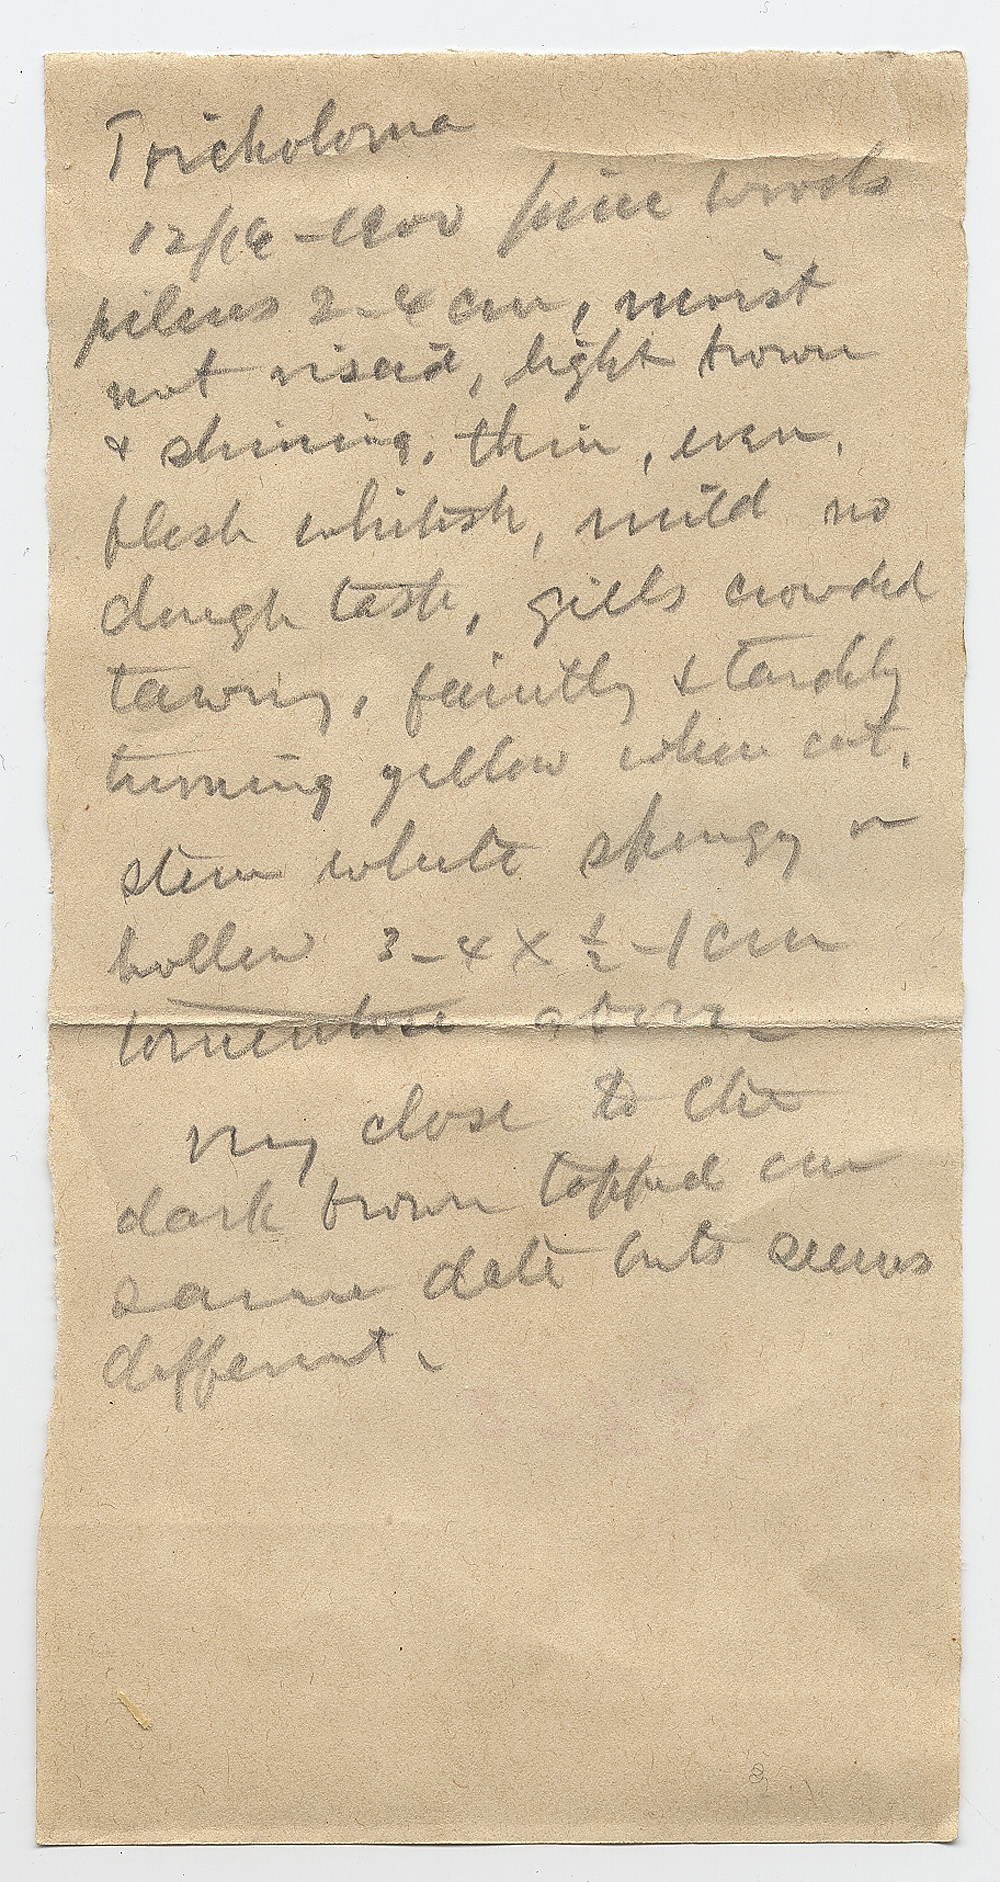 Tricholoma
12/16-1900 pine woods
pileus 2-4 cm, moist
not viscid, light brown
& shining. thin, even.
flesh whitish, mild no
dough taste, gills crowded
tawny, faintly & tardily
turning yellow when cut.
stem white spongy or
hollow 3-4 x ½-1 cm
tomentose above
very close to the
dark brown topped on
same date but seems
different.